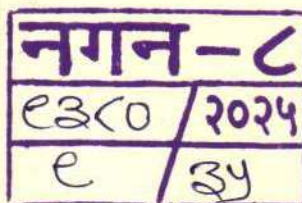 नगन-८
९३८० / २०२५
९ / ३५